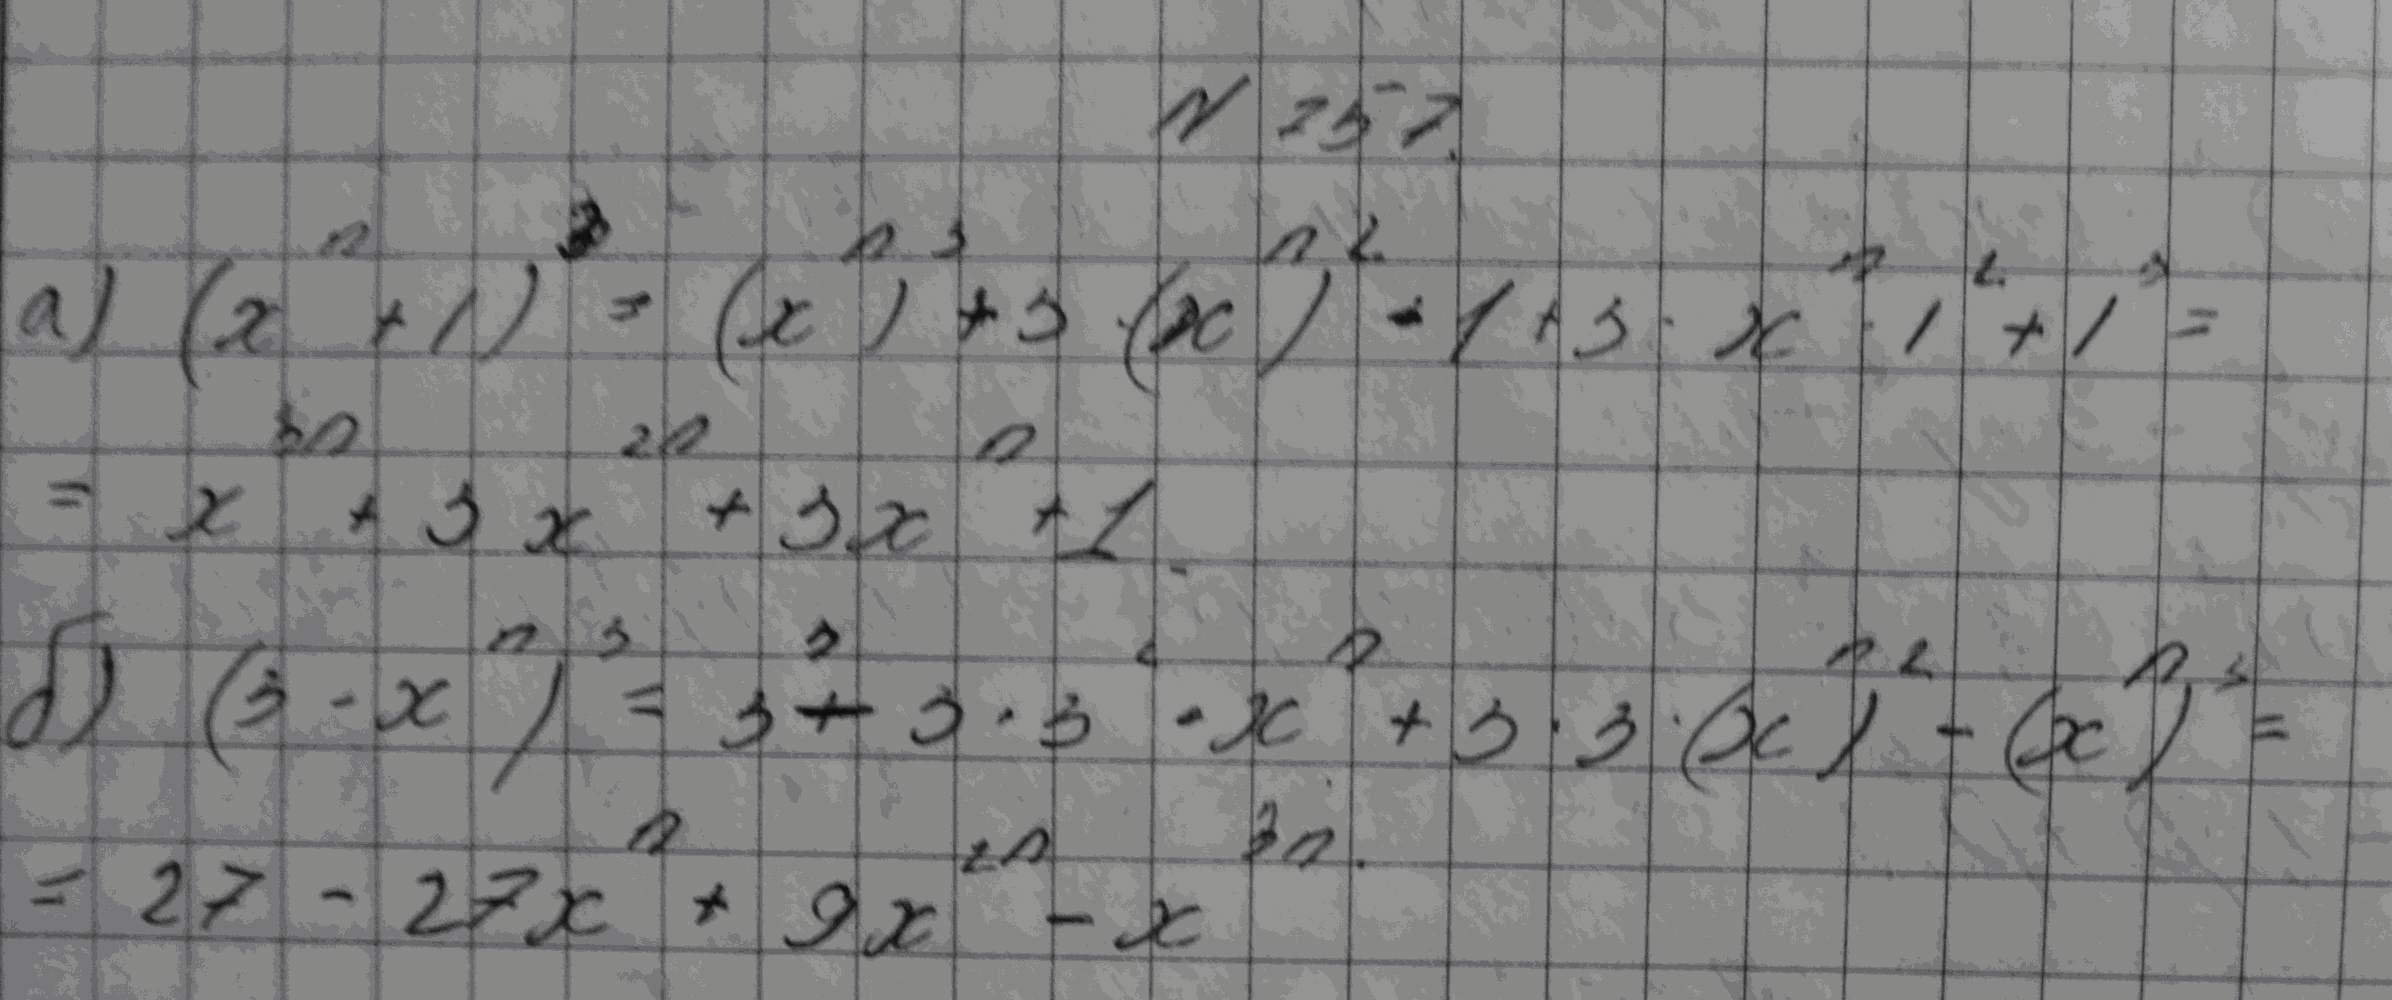 N 257.
а) (xⁿ + 1)³ = (xⁿ)³ + 3 · (xⁿ)² · 1 + 3 · xⁿ · 1² + 1³ =
= x³ⁿ + 3x²ⁿ + 3xⁿ + 1.
б) (3 - xⁿ)³ = 3³ - 3 · 3² · xⁿ + 3 · 3 · (xⁿ)² - (xⁿ)³ =
= 27 - 27xⁿ + 9x²ⁿ - x³ⁿ.